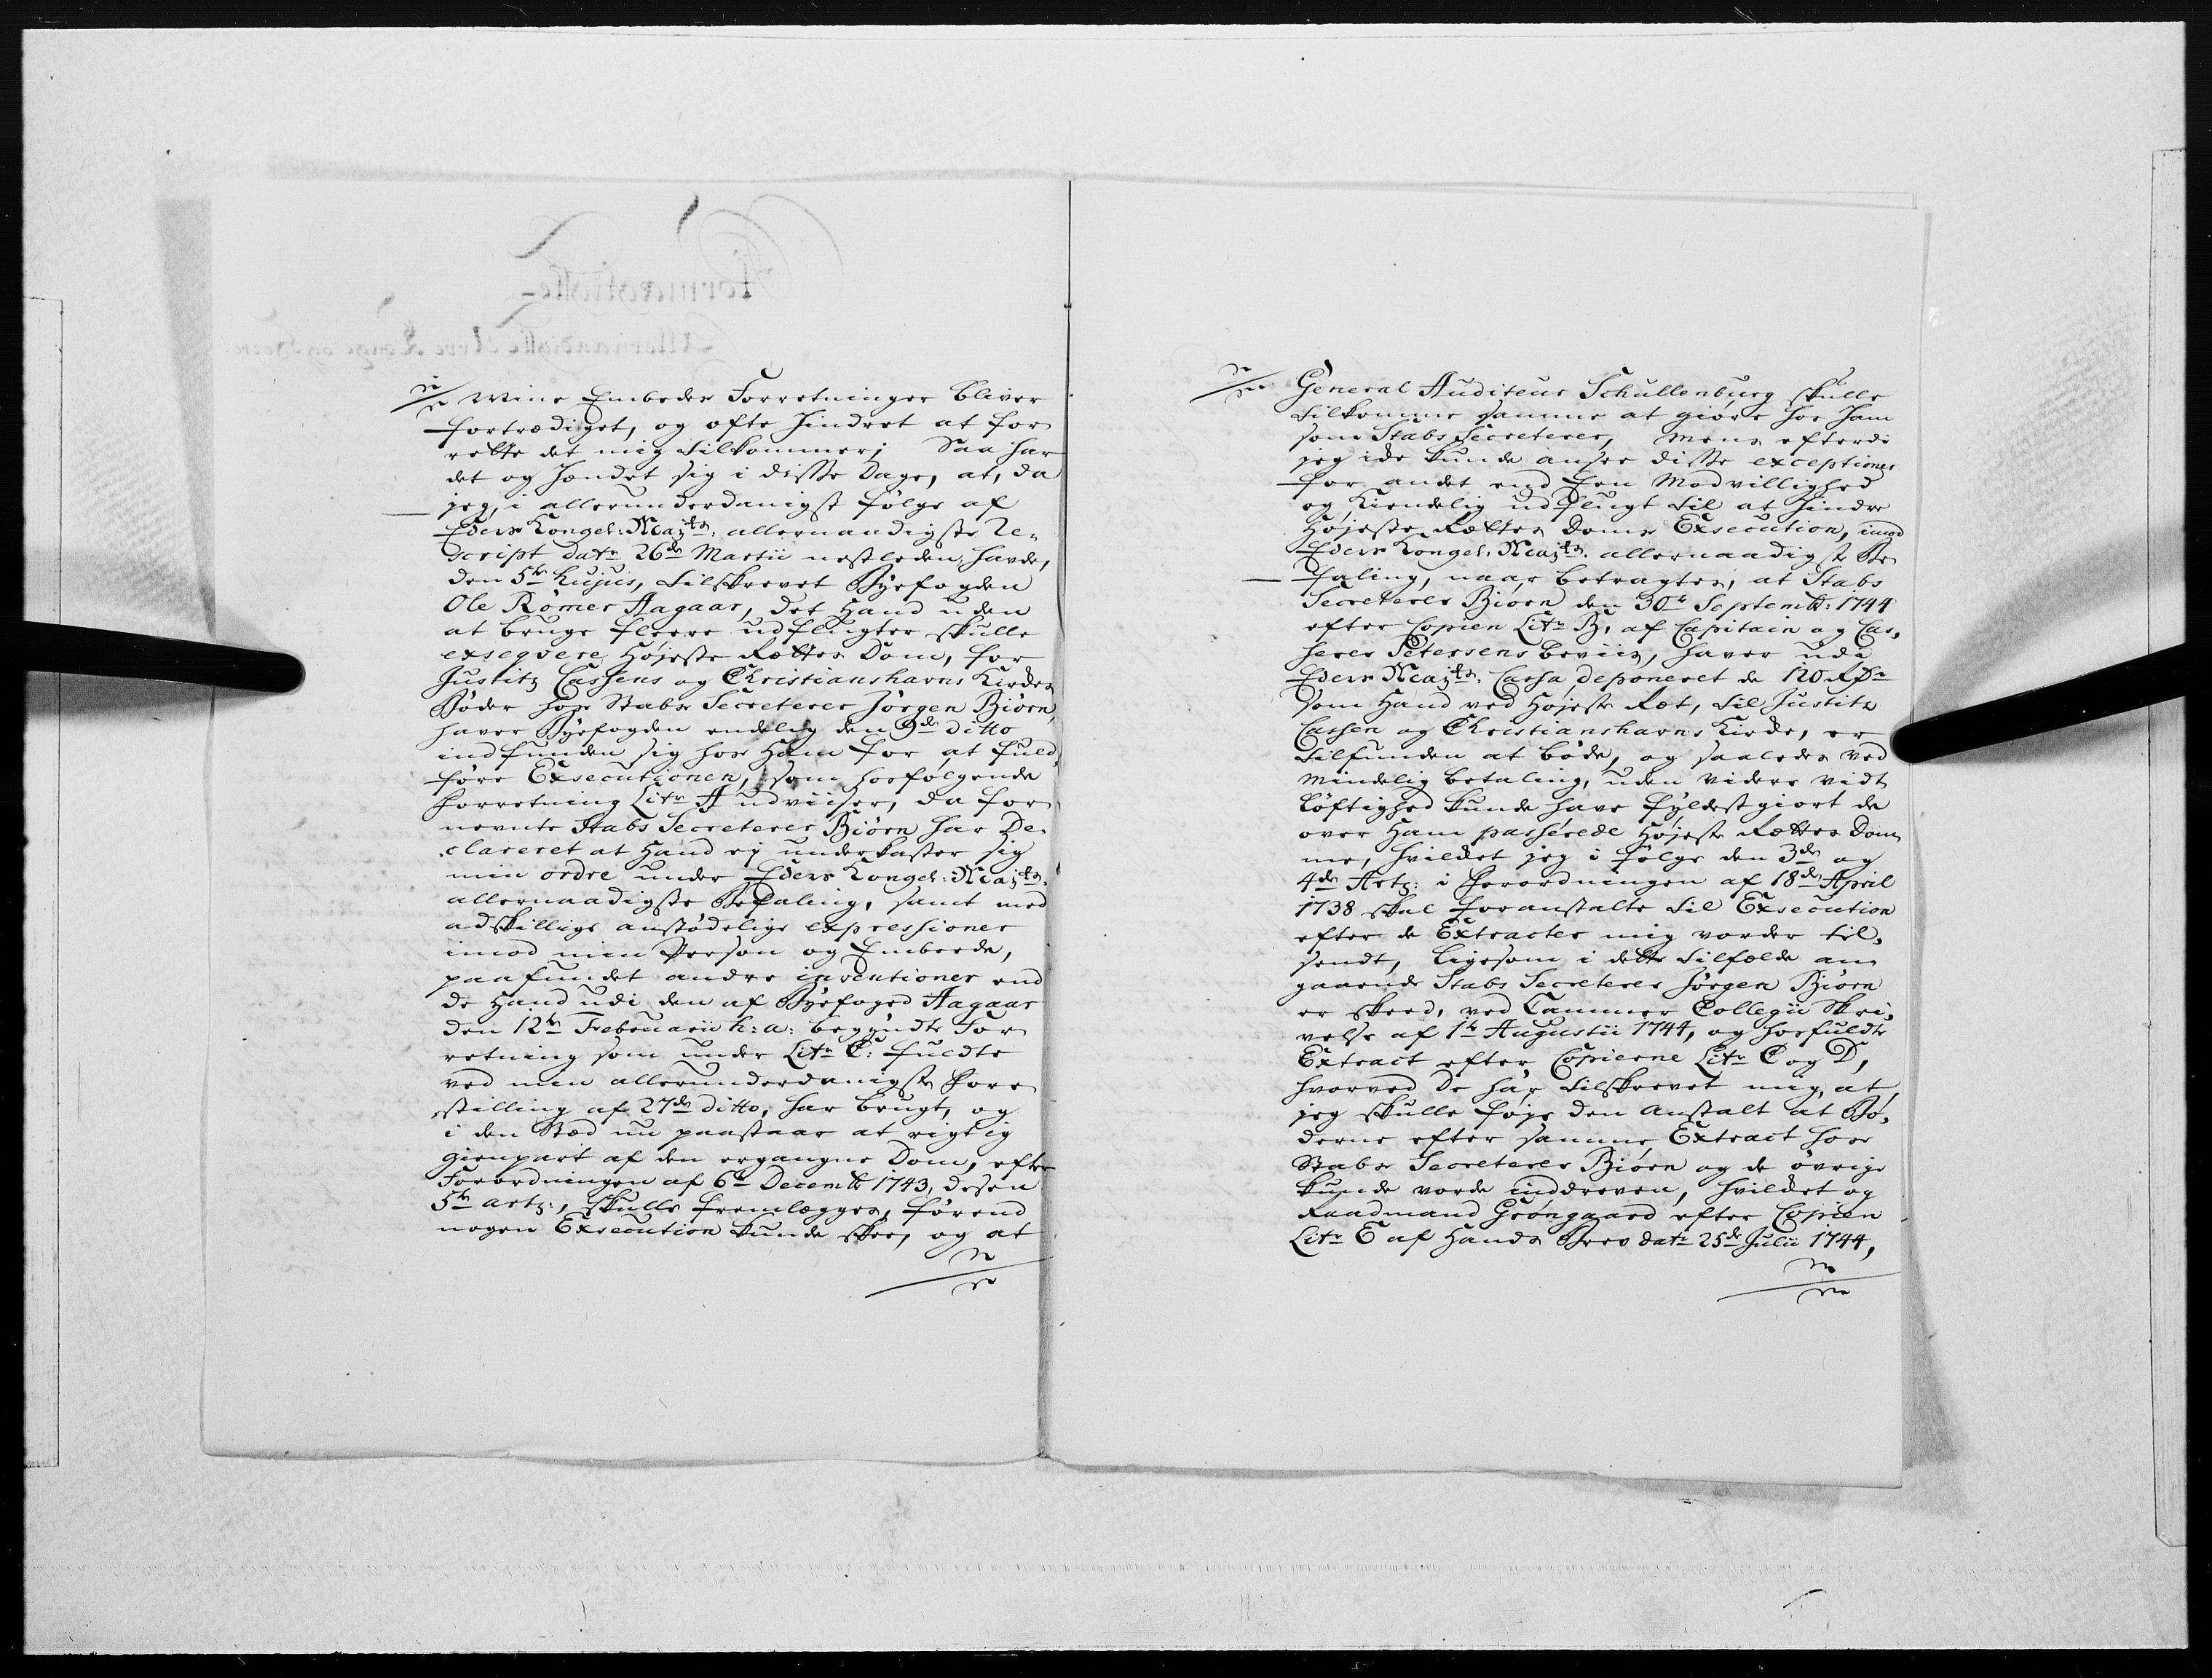 mine Embeder Forretninger bliver
fortrædiget, og ofte hindret at for
rette det mig tilkommer; Saa har
det og hændet sig i disse Dage, at, da
jeg, i allerunderdanigst følge af
Eders Kongel: Majts: allernaadigste Re,
script datr 26de Martii nestleden, havde,
den 5te hujus, tilskrevet Byefogden
Ole Römer Aagaar, det Hand uden
at bruge fleere udflugter skulle
exseqvere Højeste Rettes Dom, for
Justitz Cassens og Christianshavns Kirkes
Bøder hos Stabs Secreterer Jørgen Biørn,
haver Byefogden endelig den 9de ditto
indfunden sig hos Ham for at fuld,
føre Exsecutionen, som hosfølgende
Forretning Litr A udviiser, da for
nevnte Stabs Secreterer Biørn har De,
clareret at Hand ej underkaster sig
min ordre under Eders Kongel: Majts:
allernaadigste Befaling, samt med
adskillige anstødelige expressioner
imod min Person og Embede,
paafundet andre inventioner end
de Hand udi den af Byefoged Aagaar
den 12te Februarii h: a: begyndte For
retning som under Litr C: fuldte
ved min allerunderdanigste Fore
stilling af 27de ditto, har brugt, og
i den Sted nu paastaar at rigtig
gienpart af den ergangne Dom, efter
Forordningen af 6te Decembr 1743, desen
5te art:, skulle fremlægges, førend
nogen Exsecution kunde skee, og at
General Auditeur Schullenburg skulle
tilkomme samme at giøre hos Ham
som Stabs Secreterer, mens efterdi
jeg icke kunde ansee disse exceptioner
for andet end een Modvillighed
og kiendelig udflugt til at hindre
Højeste Rettes Doms Exsecution, imod
Eders Kongel: Majts: allernaadigste Be
faling, naar betragtes, at Stabs
Secreterer Biørn den 30te Septembr: 1744
efter Copien Litr B, af Capitain og Cas,
serer Petersens beviis, haver udi
Eders Majts: Cassa deponeret de 120 Rdr
som Hand ved Højeste Ret, til Justitz
Cassen og Christianshavns Kirke, er
tilfunden at bøde, og saaledes ved
mindelig betaling, uden videre vidt
løftighed kunde have fyldestgiort de
over Ham passerede Højeste Rettes Dom
me, hvilket jeg i følge den 3de og
4de Art: i Forordningen af 18de April
1738 skal foranstalte til Exsecution
efter de Extracter mig vorder til,
sendt, ligesom i dette tilfælde an
gaaende Stabs Secreterer Jørgen Biørn
er skeed, ved Cammer Collegii Skri,
velse af 1te Augustii 1744, og hosfuldte
Extract efter Copierne Litr C og D,
hvorved De har tilskrevet mig, at
jeg skulle føje den Anstalt at Bø,
derne efter samme Extract hos
Stabs Secreterer Biørn og de øvrige
kunde vorde inddreven, hvilket og
Raadmand Grøngaard efter Copien
Litr E af Hands Brev datr 25de Julii 1744,